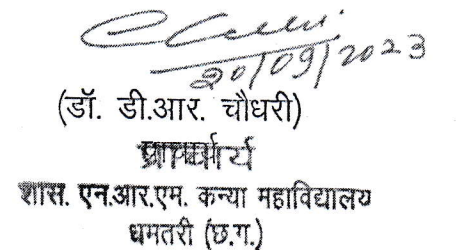 20/09/2023
(डॉ. डी.आर. चौधरी)
प्राचार्य
शास. एन.आर.एम. कन्या महाविद्यालय
धमतरी (छ.ग.)